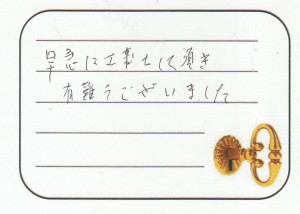 早急に工事して頂き
有難うございました